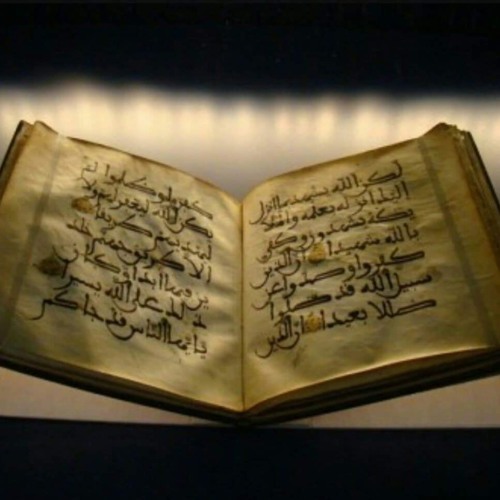 لكن الله يشهد بما انزل
اليك انزله بعلمه والملا
ئكة يشهدون وكفى
بالله شهيدا ان الذين
كفروا وصدوا عن
سبيل الله قد ضلوا
ضللا بعيدا ان الذين
كفروا وظلموا لم
يكن الله ليغفر لهم ولا
ليهديهم طريقا
الا طريق جهنم خلد
ين فيها ابدا وكان
ذلك على الله يسيرا
يايها الناس قد جاكم